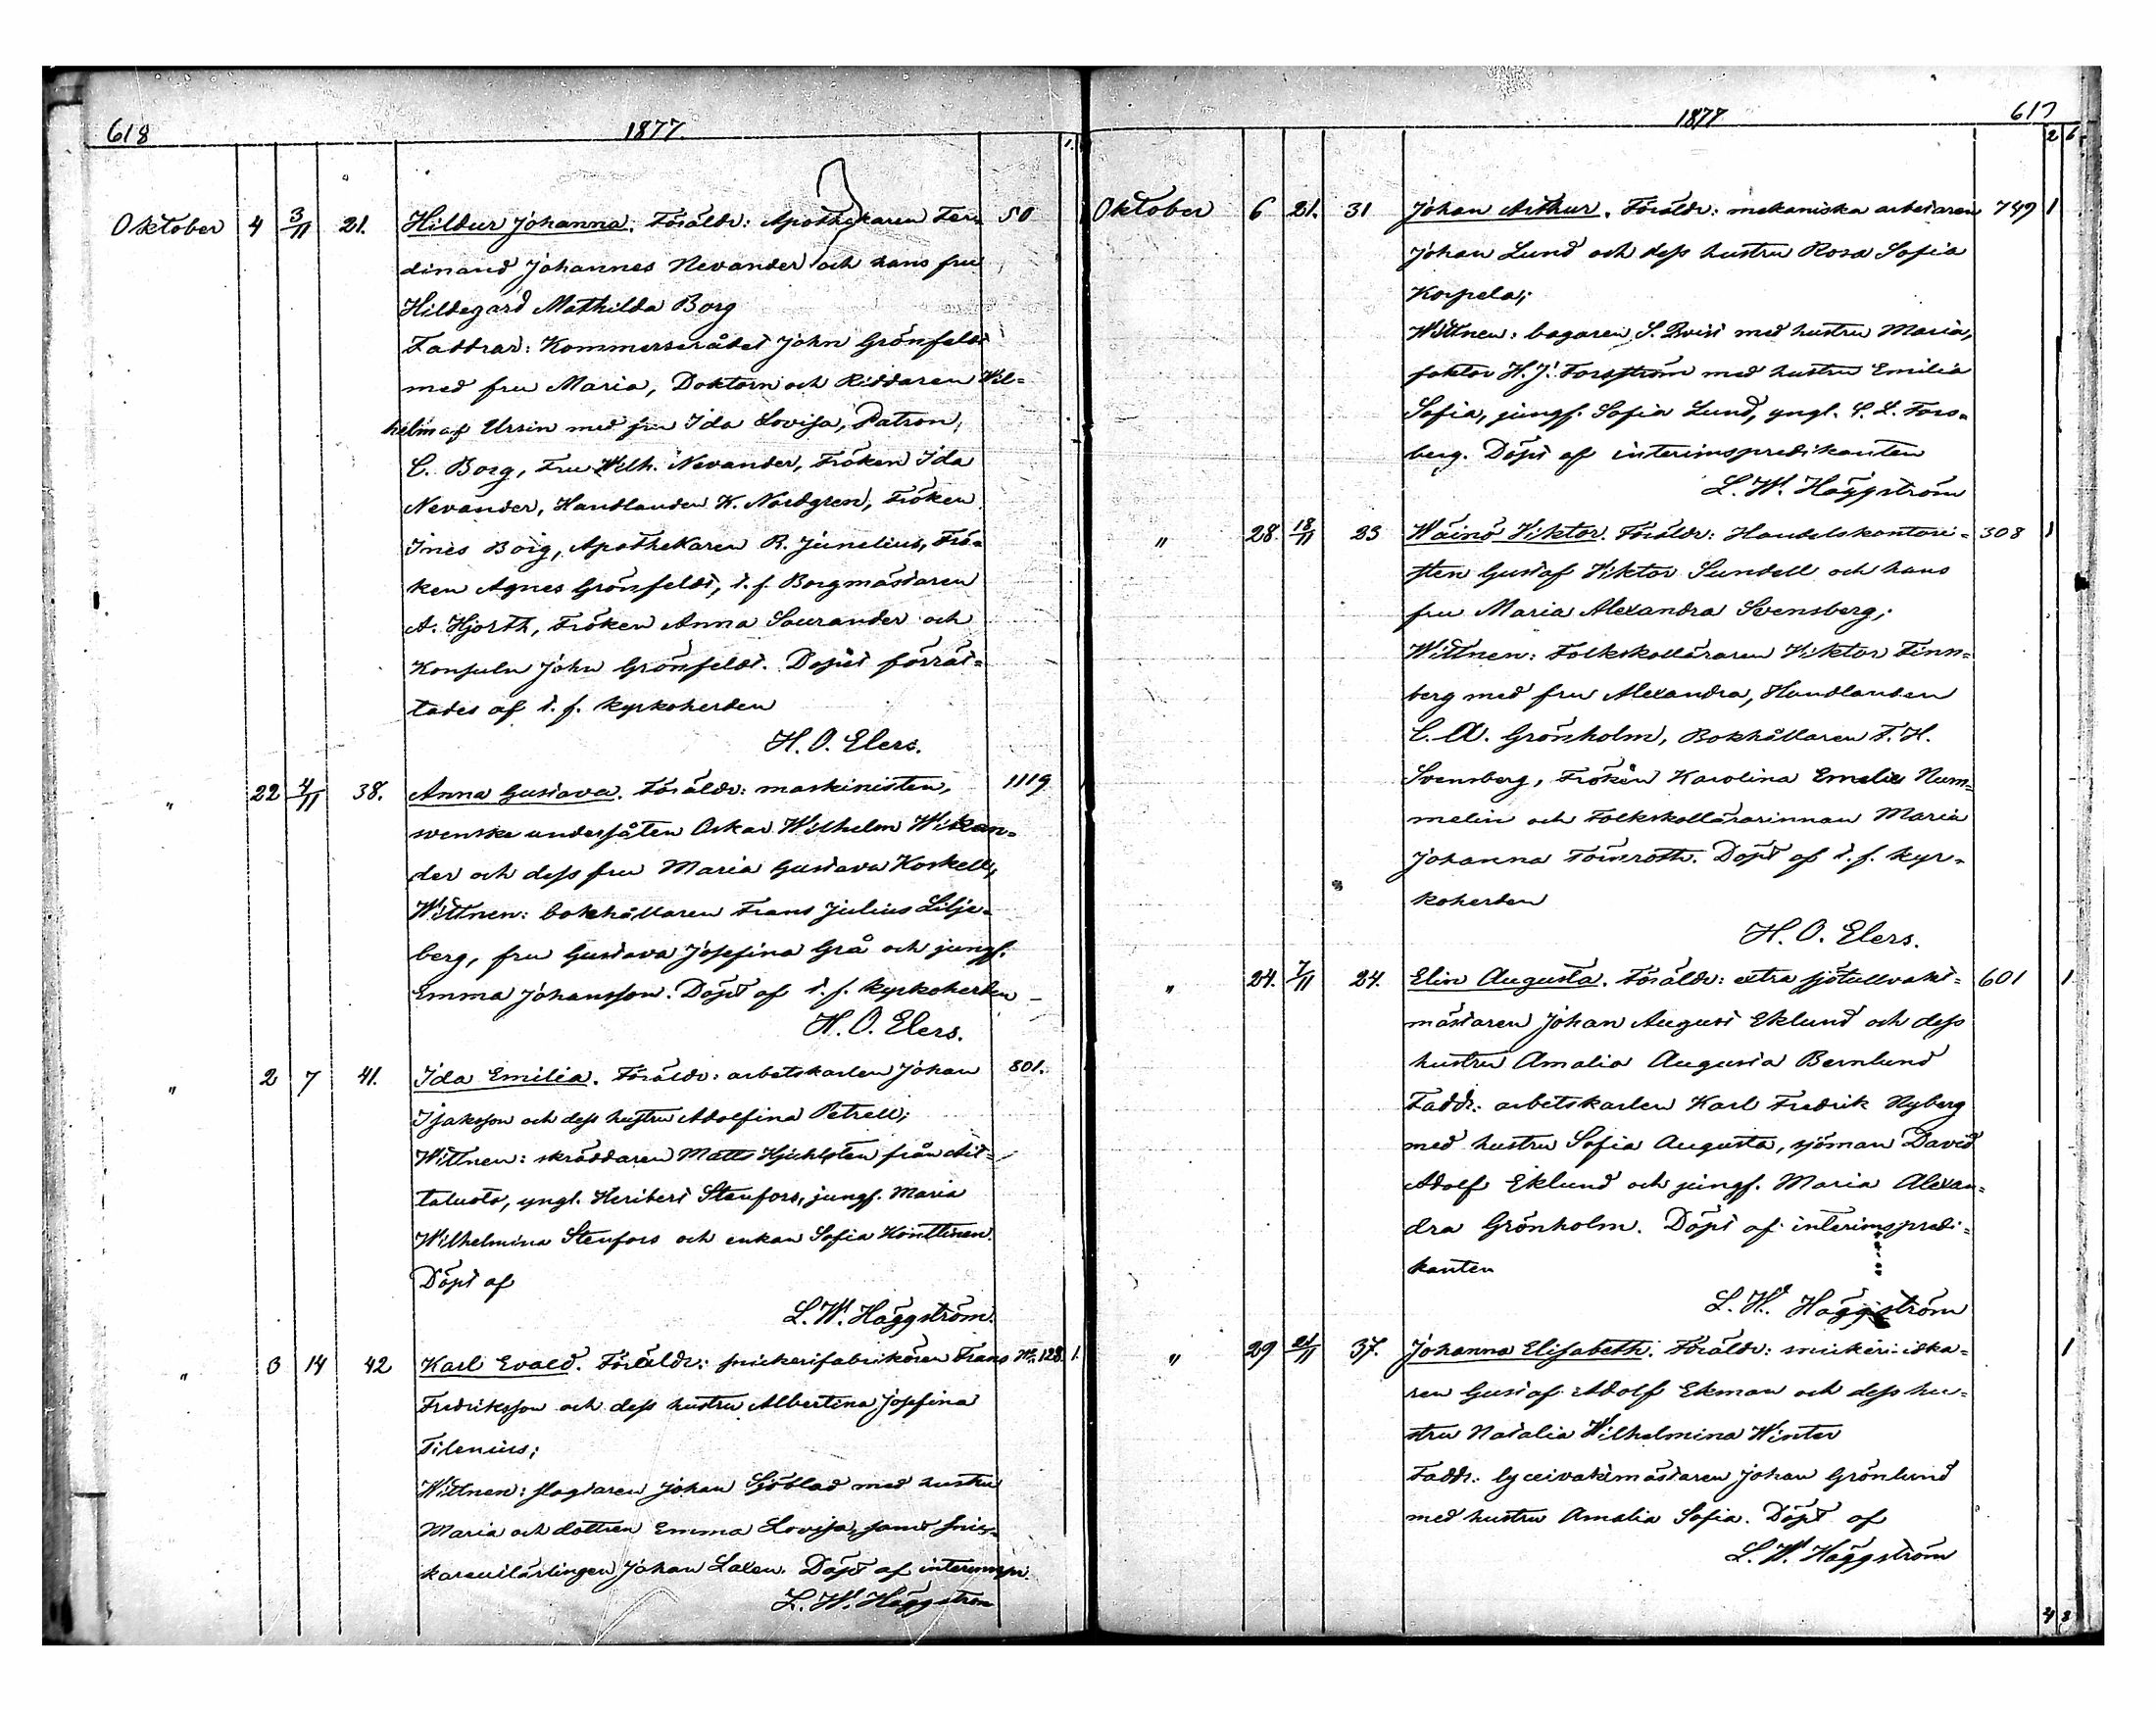 618
1877.
1.
Oktober 4 3/11 21. Hildur Johanna. Föräldr: Apothekaren Fer= 50
dinand Johannes Nevander och hans fru
Hildegard Mathilda Borg
Faddrar: Kommerserådet John Grönfeldt
med fru Maria, Doktorn och Riddaren Wil=
helm af Ursin med fru Ida Lovisa, Patron,
C. Borg, Fru Wilh. Nevander, Fröken Ida
Nevander, Handlanden K. Nordgren, Fröken
Ines Borg, Apothekaren R. Junelius, Frö=
ken Agnes Grönfeldt, t. f. Borgmästaren
A. Hjorth, Fröken Anna Saurander och
Konsuln John Grönfeldt. Dopet förrät=
tades af t. f. kyrkoherden
H. O. Elers.
" 22 4/11 38. Anna Gustava. Föräldr: maskinisten, 1119
svenske undersåten Oskar Wilhelm Wikan=
der och dess fru Maria Gustava Koskell,
Wittnen: bokhållaren Frans Julius Lilje=
berg, fru Gustava Josefina Grå och jungf.
Emma Johansson. Döpt af t. f. kyrkoherden
H. O. Elers.
" 2 7 41. Ida Emilia. Föräldr: arbetskarlen Johan 801.
Isaksson och dess hustru Adolfina Petrell;
Wittnen: skräddaren Matts från
, yngl. Heribert Stenfors, jungf. Maria
Wilhelmina Stenfors och enkan Sofia Konttinen.
Döpt af
L. W. Häggström.
" 3 14 42 Karl Evald. Föräldr: snickerifabrikören Frans No 128. 1.
Fredriksson och dess hustru Albertina Josefina
Filenius;
Wittnen: slagtaren Johan Sjöblad med hustru
Maria och dottren Emma Lovisa, samt snic=
karelärlingen Johan Laxen. Döpt af interimspr.
L. W. Häggström
1877
617
2 6
Oktober 6 21. 31 Johan Arthur. Föräldr: mekaniska arbetaren 749 1
Johan Lund och dess hustru Rosa Sofia
Korpela;
Wittnen: bagaren S. Qvist med hustru Maria,
faktor H. J. Forsström med hustru Emilia
Sofia, jungf. Sofia Lund, yngl. C. L. Fors=
berg. Döpt af interimspredikanten
L. W. Häggström
" 28. 18/11 23 Wäinö Viktor. Föräldr: Handelskontori= 308 1
sten Gustaf Viktor Sundell och hans
fru Maria Alexandra Svensberg;
Wittnen: Folkskolläraren Viktor Finn=
berg med fru Alexandra, Handlanden
C. A. Grönholm, Bokhållaren F. H.
Svensberg, Fröken Karolina Emelie Num=
melin och Folkskollärarinnan Maria
Johanna Törnroth. Döpt af t. f. kyr=
koherden
H. O. Elers.
" 24. 7/11 24. Elin Augusta. Föräldr: extra sjötullvakt= 601 1
mästaren Johan August Eklund och dess
hustru Amalia Augusta Bernlund
Faddr: arbetskarlen Karl Fredrik Nyberg
med hustru Sofia Augusta, sjöman David
Adolf Eklund och jungf. Maria Alexan=
dra Grönholm. Döpt af interimspredi=
kanten
L. W. Häggström
" 29 21/11 37. Johanna Elisabeth. Föräldr: snickeri-idka= 1
ren Gustaf Adolf Ekman och dess hu=
stru Natalia Wilhelmina Winter
Faddr: lyceivaktmästaren Johan Grönlund
med hustru Amalia Sofia. Döpt af
L. W. Häggström